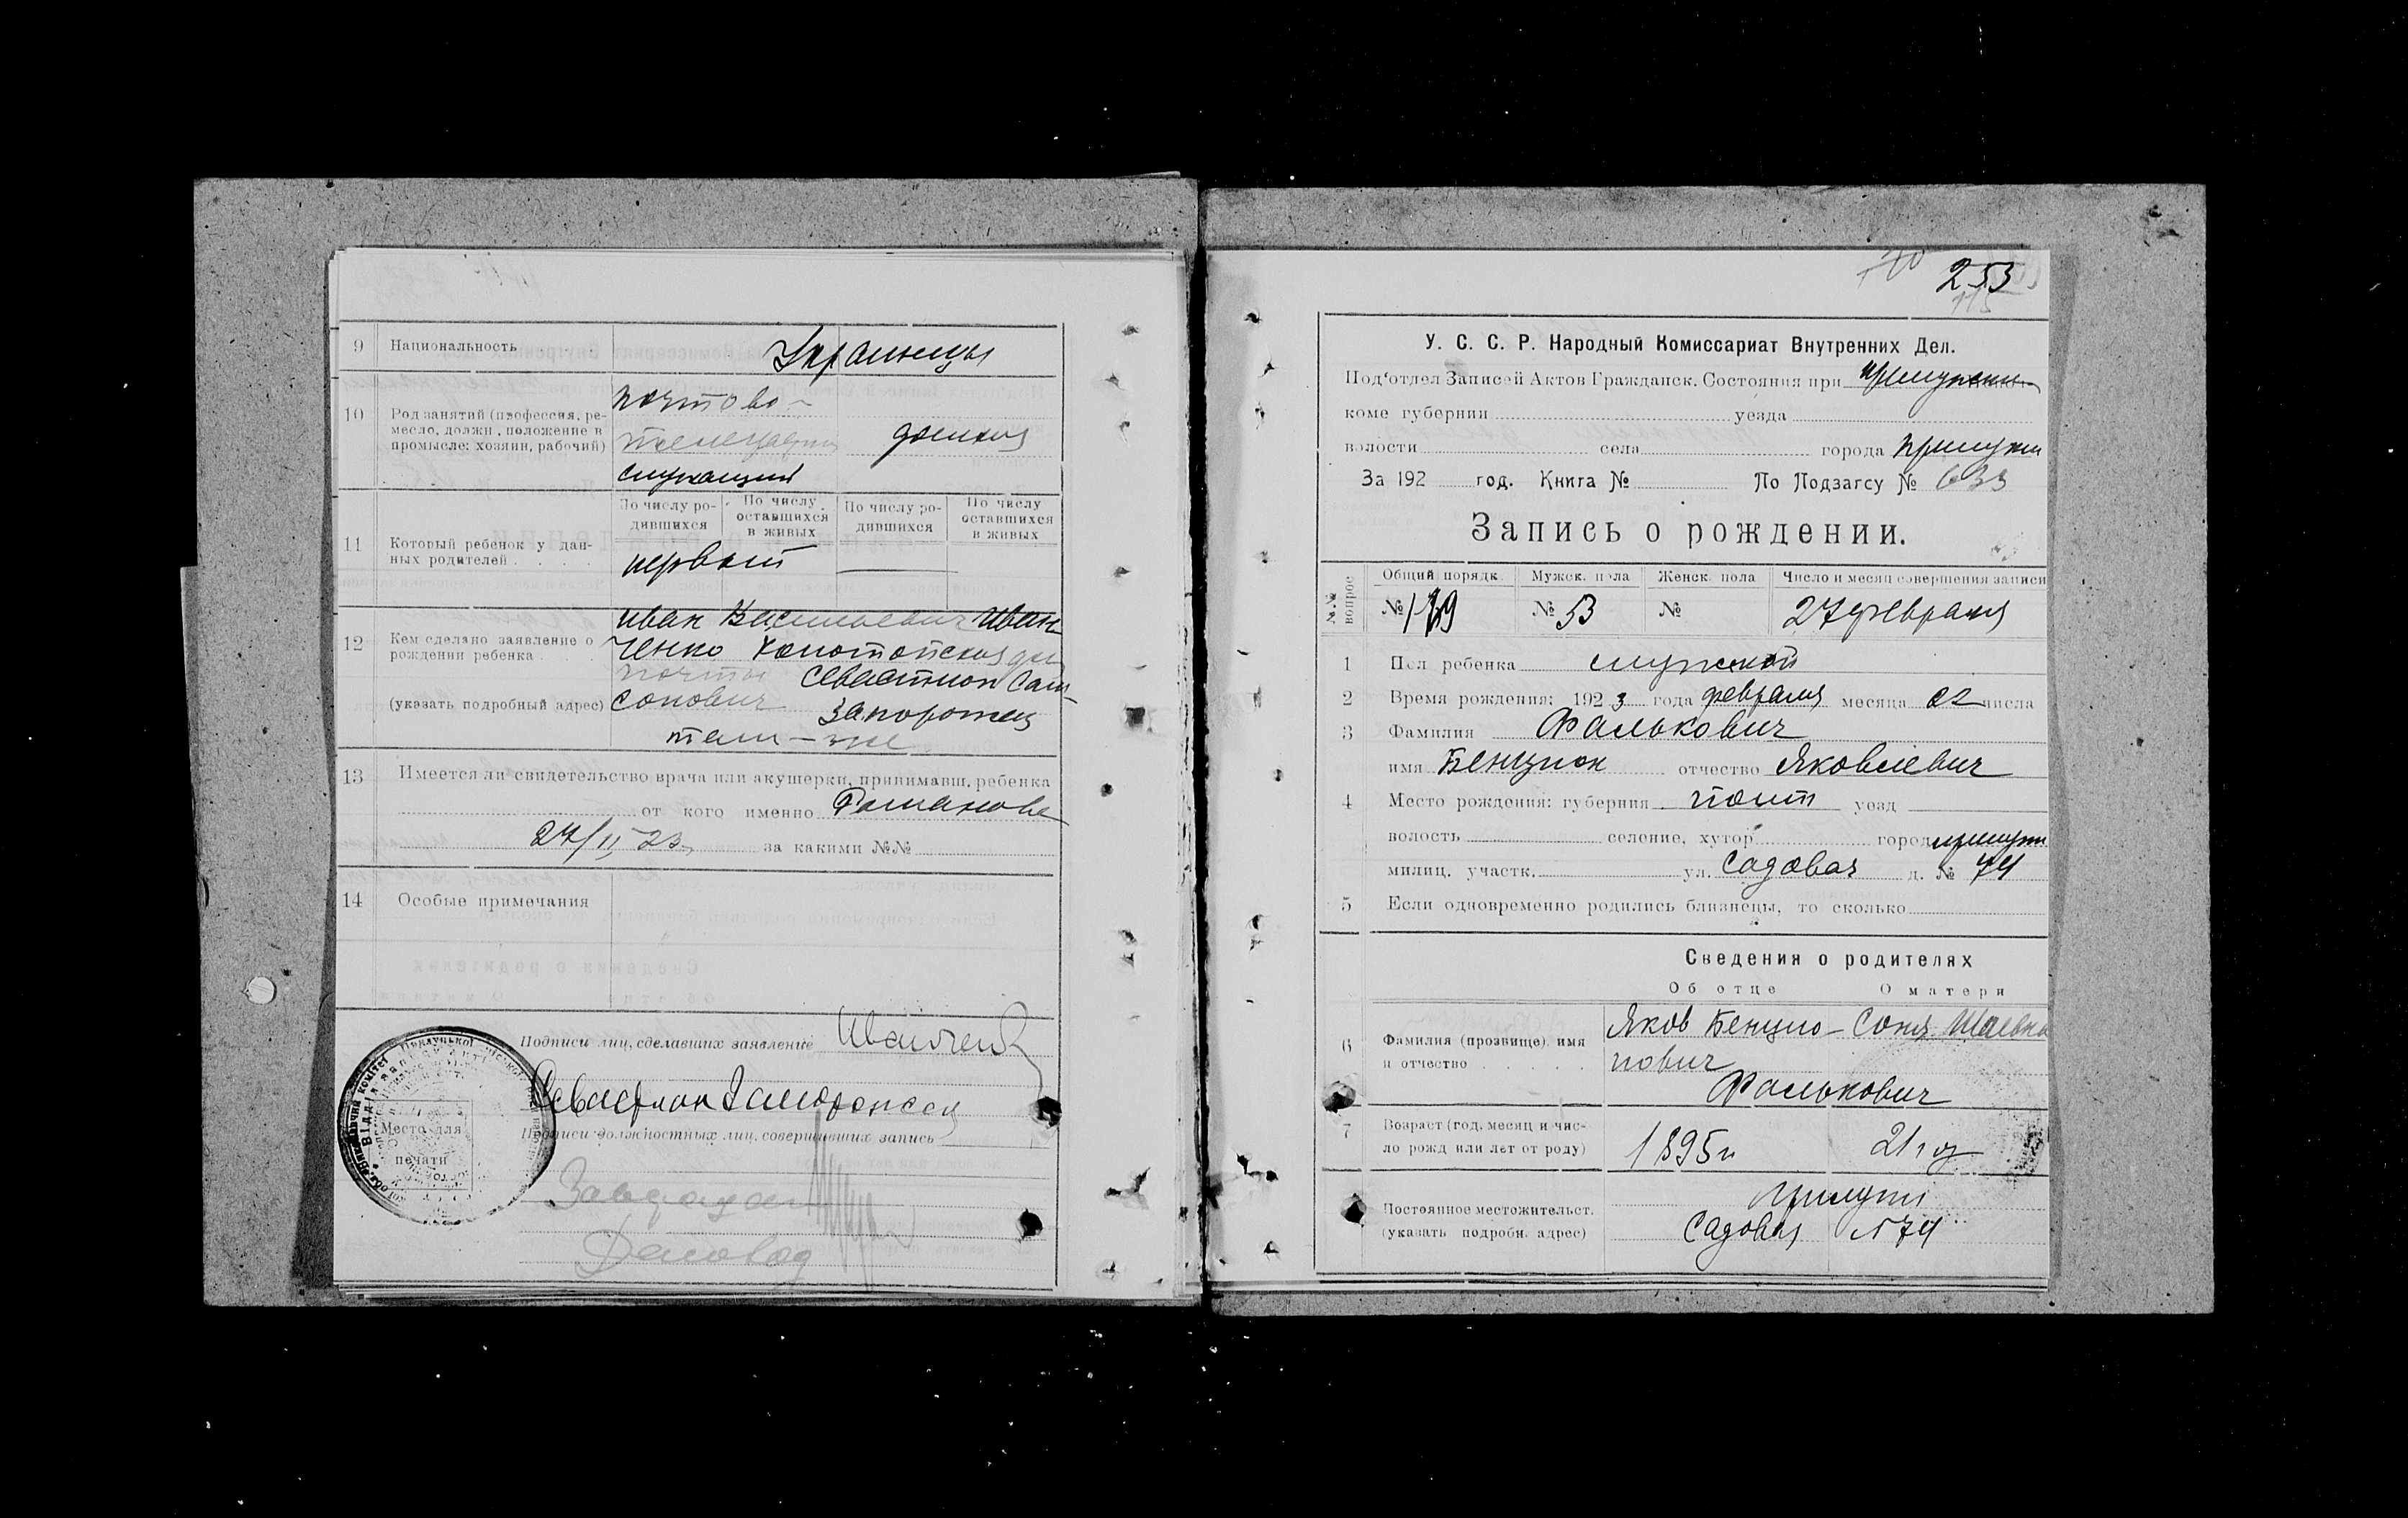 9 Национальность Украинцы
10 Род занятий (профессия, ре-
месло, должн., положение в
промысле: хозяин, рабочий)
почтово-
телеграфн
служащий
домохоз
11 Который ребенок у дан-
ных родителей
По числу ро-
дившихся
По числу
оставшихся
в живых
По числу ро-
дившихся
По числу
оставшихся
в живых
первый
12 Кем сделано заявление о
рождении ребенка
(указать подробный адрес)
Иван Васильевич Иван
ченко Конотопская
почты Севастион Сам
сонович Запорожец
там-же
13 Имеется ли свидетельство врача или акушерки, принимавш. ребенка
от кого именно Романова
27/II 23 за какими №№
14 Особые примечания
Подписи лиц, сделавших заявление Иванченко
Севастион Запорожец
Подписи должностных лиц, совершивших запись
Место для
печати
Завзагсом
Деловод
253
У. С. С. Р. Народный Комиссариат Внутренних Дел.
Под'отдел Записей Актов Гражданск. Состояния при Прилукском
коме губернии уезда
волости села города Прилуки
За 192 год. Книга № По Подзагсу № 633
Запись о рождении.
№№ вопрос
Общий порядк. Мужск. пола Женск. пола Число и месяц совершения записи
№ № 53 № 27 февраля
1 Пол ребенка мужской
2 Время рождения: 1923 года февраля месяца 22 числа
3 Фамилия Фалькович
имя Бенцион отчество Яковлевич
4 Место рождения: губерния Полт уезд
волость селение, хутор город Прилуки
милиц. участк. ул. Садовая д. № 74
5 Если одновременно родились близнецы, то сколько
Сведения о родителях
Об отце О матери
6 Фамилия (прозвище), имя
и отчество
Яков Бенцио- Соня Шаевна
нович
Фалькович
7 Возраст (год, месяц и чис-
ло рожд или лет от роду)
1895 г 21 год
Постоянное местожительст.
(указать подробн. адрес)
Прилуки
Садовая № 74